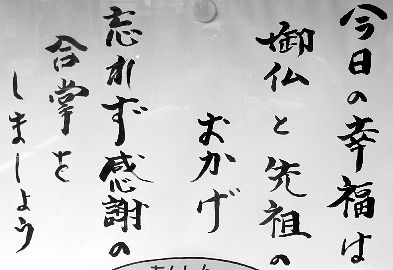 今日の幸福は
御仏と先祖の
おかげ
忘れず感謝の
合掌を
しましょう